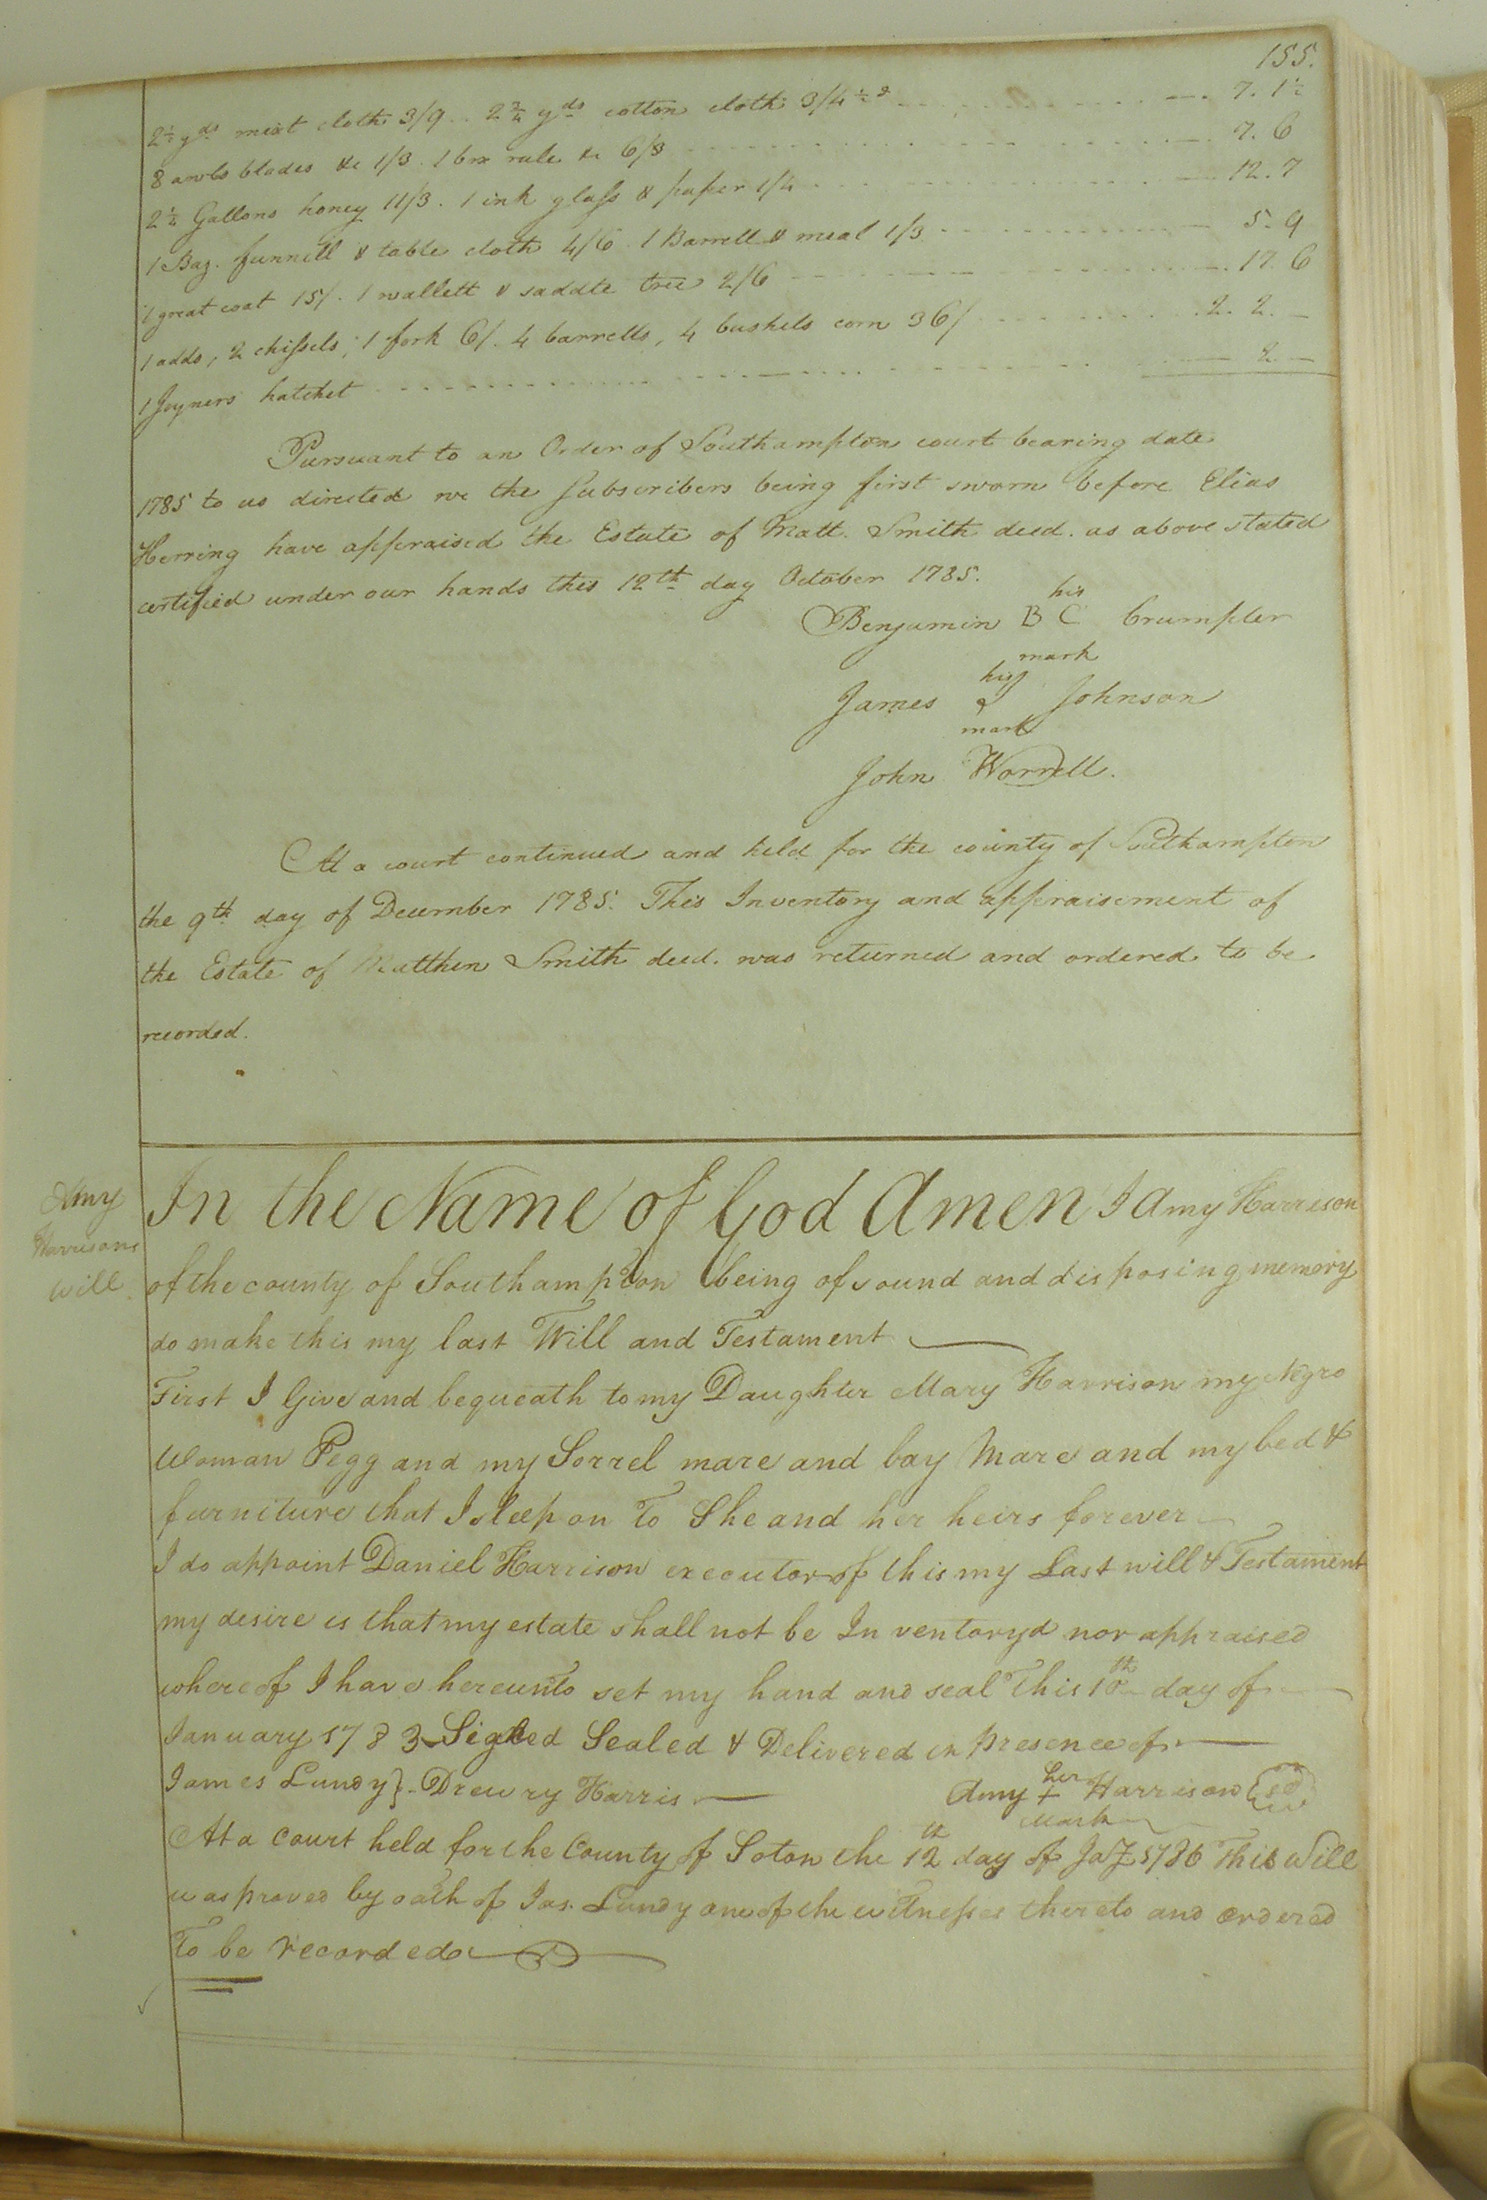 155.
2½ yds mixt cloth 3/9 .. 2¾ yds cotton cloth 3/4½ 7. 1½
8 awls blades &c 1/3. 1 box rule &c 6/3 7. 6
2½ Gallons honey 11/3. 1 ink glass & paper 1/4 12. 7
1 Bag. funnill & table cloth 4/6 1 Barrell & meal 1/3 5. 9
1 great coat 15/. 1 wallett & saddle tree 2/6 17. 6
1 adds, 2 chissels, 1 fork 6/. 4 barrells, 4 bushels corn 36/ 2. 2. —
1 Joyners hatchet 2. —
Pursuant to an Order of Southampton court bearing date
1785 to us directed we the subscribers being first sworn before Elias
Herring have appraised the Estate of Matt. Smith decd. as above stated
certified under our hands this 12th day October 1785.
his
Benjamin B C Crumpler
mark
his
James Johnson
mark
John Worrell.
At a court continued and held for the county of Southampton
the 9th day of December 1785. This Inventory and appraisement of
the Estate of Matthew Smith decd. was returned and ordered to be
recorded.
Amy
Harrisons
Will
In the Name of God Amen I Amy Harrison
of the county of Southampton being of sound and disposing memory
do make this my last Will and Testament
First I Give and bequeath to my Daughter Mary Harrison my Negro
Woman Pegg and my Sorrel mare and bay Mare and my bed &
furniture that I sleep on To She and her heirs forever
I do appoint Daniel Harrison executor of this my Last will & Testament
my desire is that my estate shall not be Inventoryd nor appraised
whereof I have hereunto set my hand and seal This 10th day of
January 1783 Signed Sealed & Delivered in presence of
James Lundy } Drewry Harris
her
Amy + Harrison
Mark
At a Court held for the County of Soton the 12th day of Jay 1786 This Will
was proved by oath of Jas. Lundy one of the witnesses thereto and ordered
To be recorded